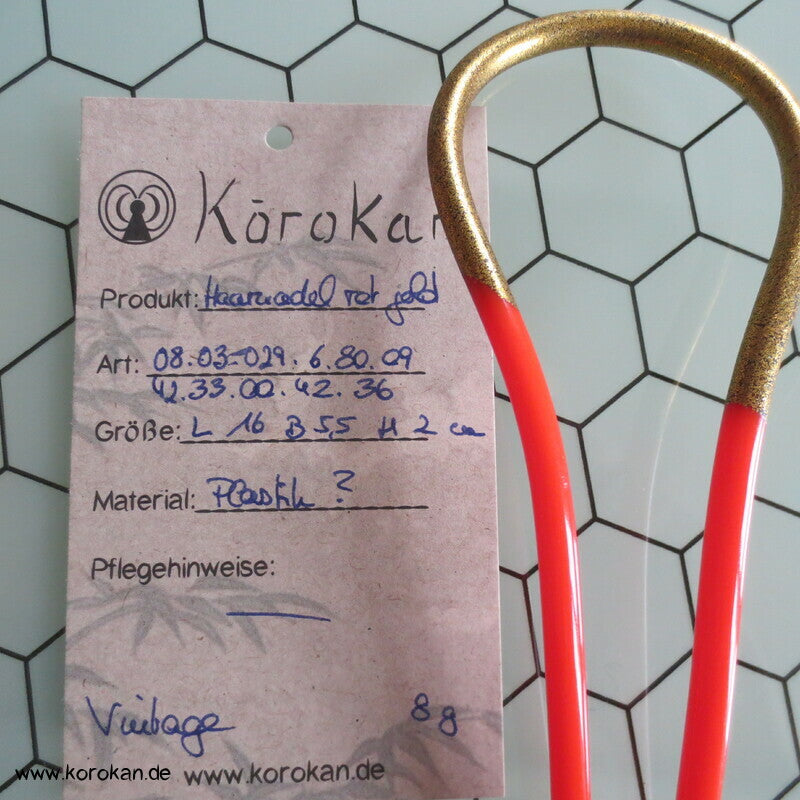 Kōrokan
Produkt: Haarnadel rot gold
Art: 08.03-029.6.80.09
42.33.00.42.36
Größe: L 16 B 5,5 H 2 cm
Material: Plastik ?
Pflegehinweise:
Vintage 8g
www.korokan.de
www.korokan.de